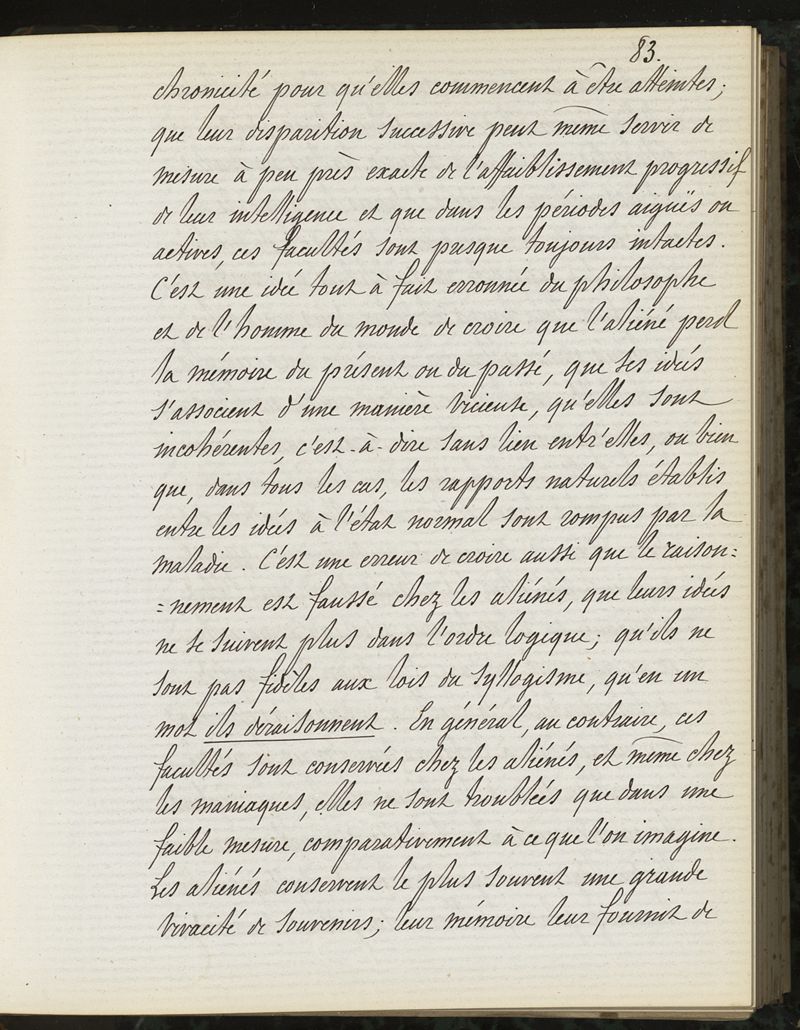 83.
chronicité pour qu'elles commencent à être atteintes;
que leur disparition successive peut même servir de
mesure à peu près exacte de l'affaiblissement progressif
de leur intelligence et que dans les périodes aiguës ou
actives, ces facultés sont presque toujours intactes.
C'est une idée tout à fait erronnée du philosophe
et de l'homme du monde de croire que l'aliéné perd
la mémoire du présent ou du passé, que ses idées
s'associent d'une manière vicieuse, qu'elles sont
incohérentes, c'est-à-dire sans lien entr'elles, ou bien
que, dans tous les cas, les rapports naturels établis
entre les idées à l'état normal sont rompus par la
maladie. C'est une erreur de croire aussi que le raison=
=nement est faussé chez les aliénés, que leurs idées
ne se suivent plus dans l'ordre logique; qu'ils ne
sont pas fidèles aux lois du syllogisme, qu'en un
mot ils déraisonnent. En général, au contraire, ces
facultés sont conservées chez les aliénés, et même chez
les maniaques, elles ne sont troublées que dans une
faible mesure, comparativement à ce que l'on imagine.
Les aliénés conservent le plus souvent une grande
vivacité de souvenirs; leur mémoire leur fournit de